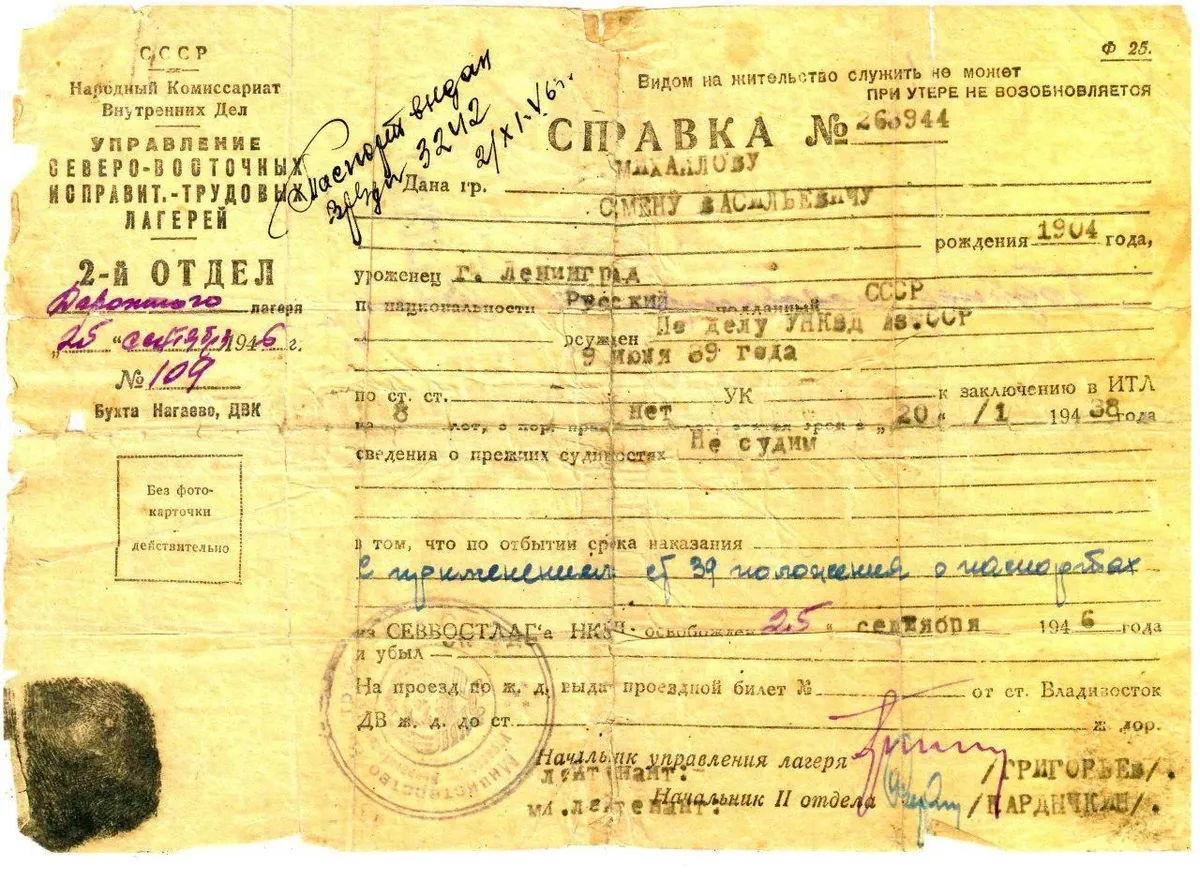 СССР
Народный Комиссариат
Внутренних Дел
УПРАВЛЕНИЕ
СЕВЕРО-ВОСТОЧНЫХ
ИСПРАВИТ.-ТРУДОВЫХ
ЛАГЕРЕЙ
2-й ОТДЕЛ
Дорожного лагеря
„25“ сентября 1946 г.
№ 109
Бухта Нагаево, ДВК
Без фото-
карточки
действительно
Паспорт выдан
3242
Ф 25.
Видом на жительство служить не может
ПРИ УТЕРЕ НЕ ВОЗОБНОВЛЯЕТСЯ
СПРАВКА № 263944
Дана гр. МИХАЙЛОВУ
СЕМЕНУ ВАСИЛЬЕВИЧУ
рождения 1904 года,
уроженец г. Ленинград
по национальности Русский подданный СССР
осужден По делу УНКВД
9 июня 39 года
по ст. ст. УК к заключению в ИТЛ
на 8 лет, с пор. нет срок с „20“ /1 194 38 года
сведения о прежних судимостях Не судим
в том, что по отбытии срока наказания
с применением ст 39 положения о паспортах
из СЕВВОСТЛАГ'а НКВД освобожден 25 „ сентября 194 6 года
и убыл
На проезд по ж. д. выдан проездной билет № от ст. Владивосток
ДВ ж. д. до ст. ж. дор.
Начальник управления лагеря
лейтенант: /ГРИГОРЬЕВ/.
Начальник II отдела
мл. лейтенант: /КАРДИЧКИН/.
Министерство